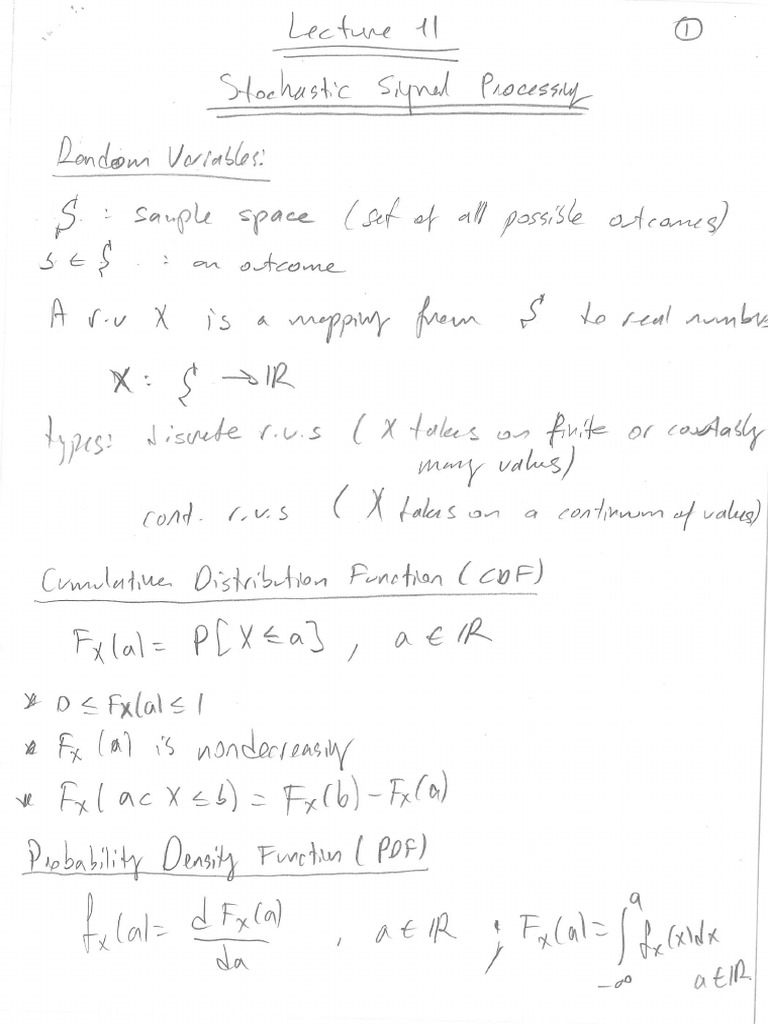 Lecture 11
①
Stochastic Signal Processing
Random Variables:
S : sample space (set of all possible outcomes)
s ∈ S : an outcome
A r.v X is a mapping from S to real numbers
X : S → ℝ
types: discrete r.v.s (X takes on finite or countably
many values)
cont. r.v.s (X takes on a continuum of values)
Cumulative Distribution Function (CDF)
F_X(a) = P[X ≤ a], a ∈ ℝ
* 0 ≤ F_X(a) ≤ 1
* F_X(a) is nondecreasing
* F_X(a < X ≤ b) = F_X(b) - F_X(a)
Probability Density Function (PDF)
f_X(a) = dF_X(a)/da , a ∈ ℝ ; F_X(a) = ∫_{-∞}^{a} f_X(x)dx
a ∈ ℝ